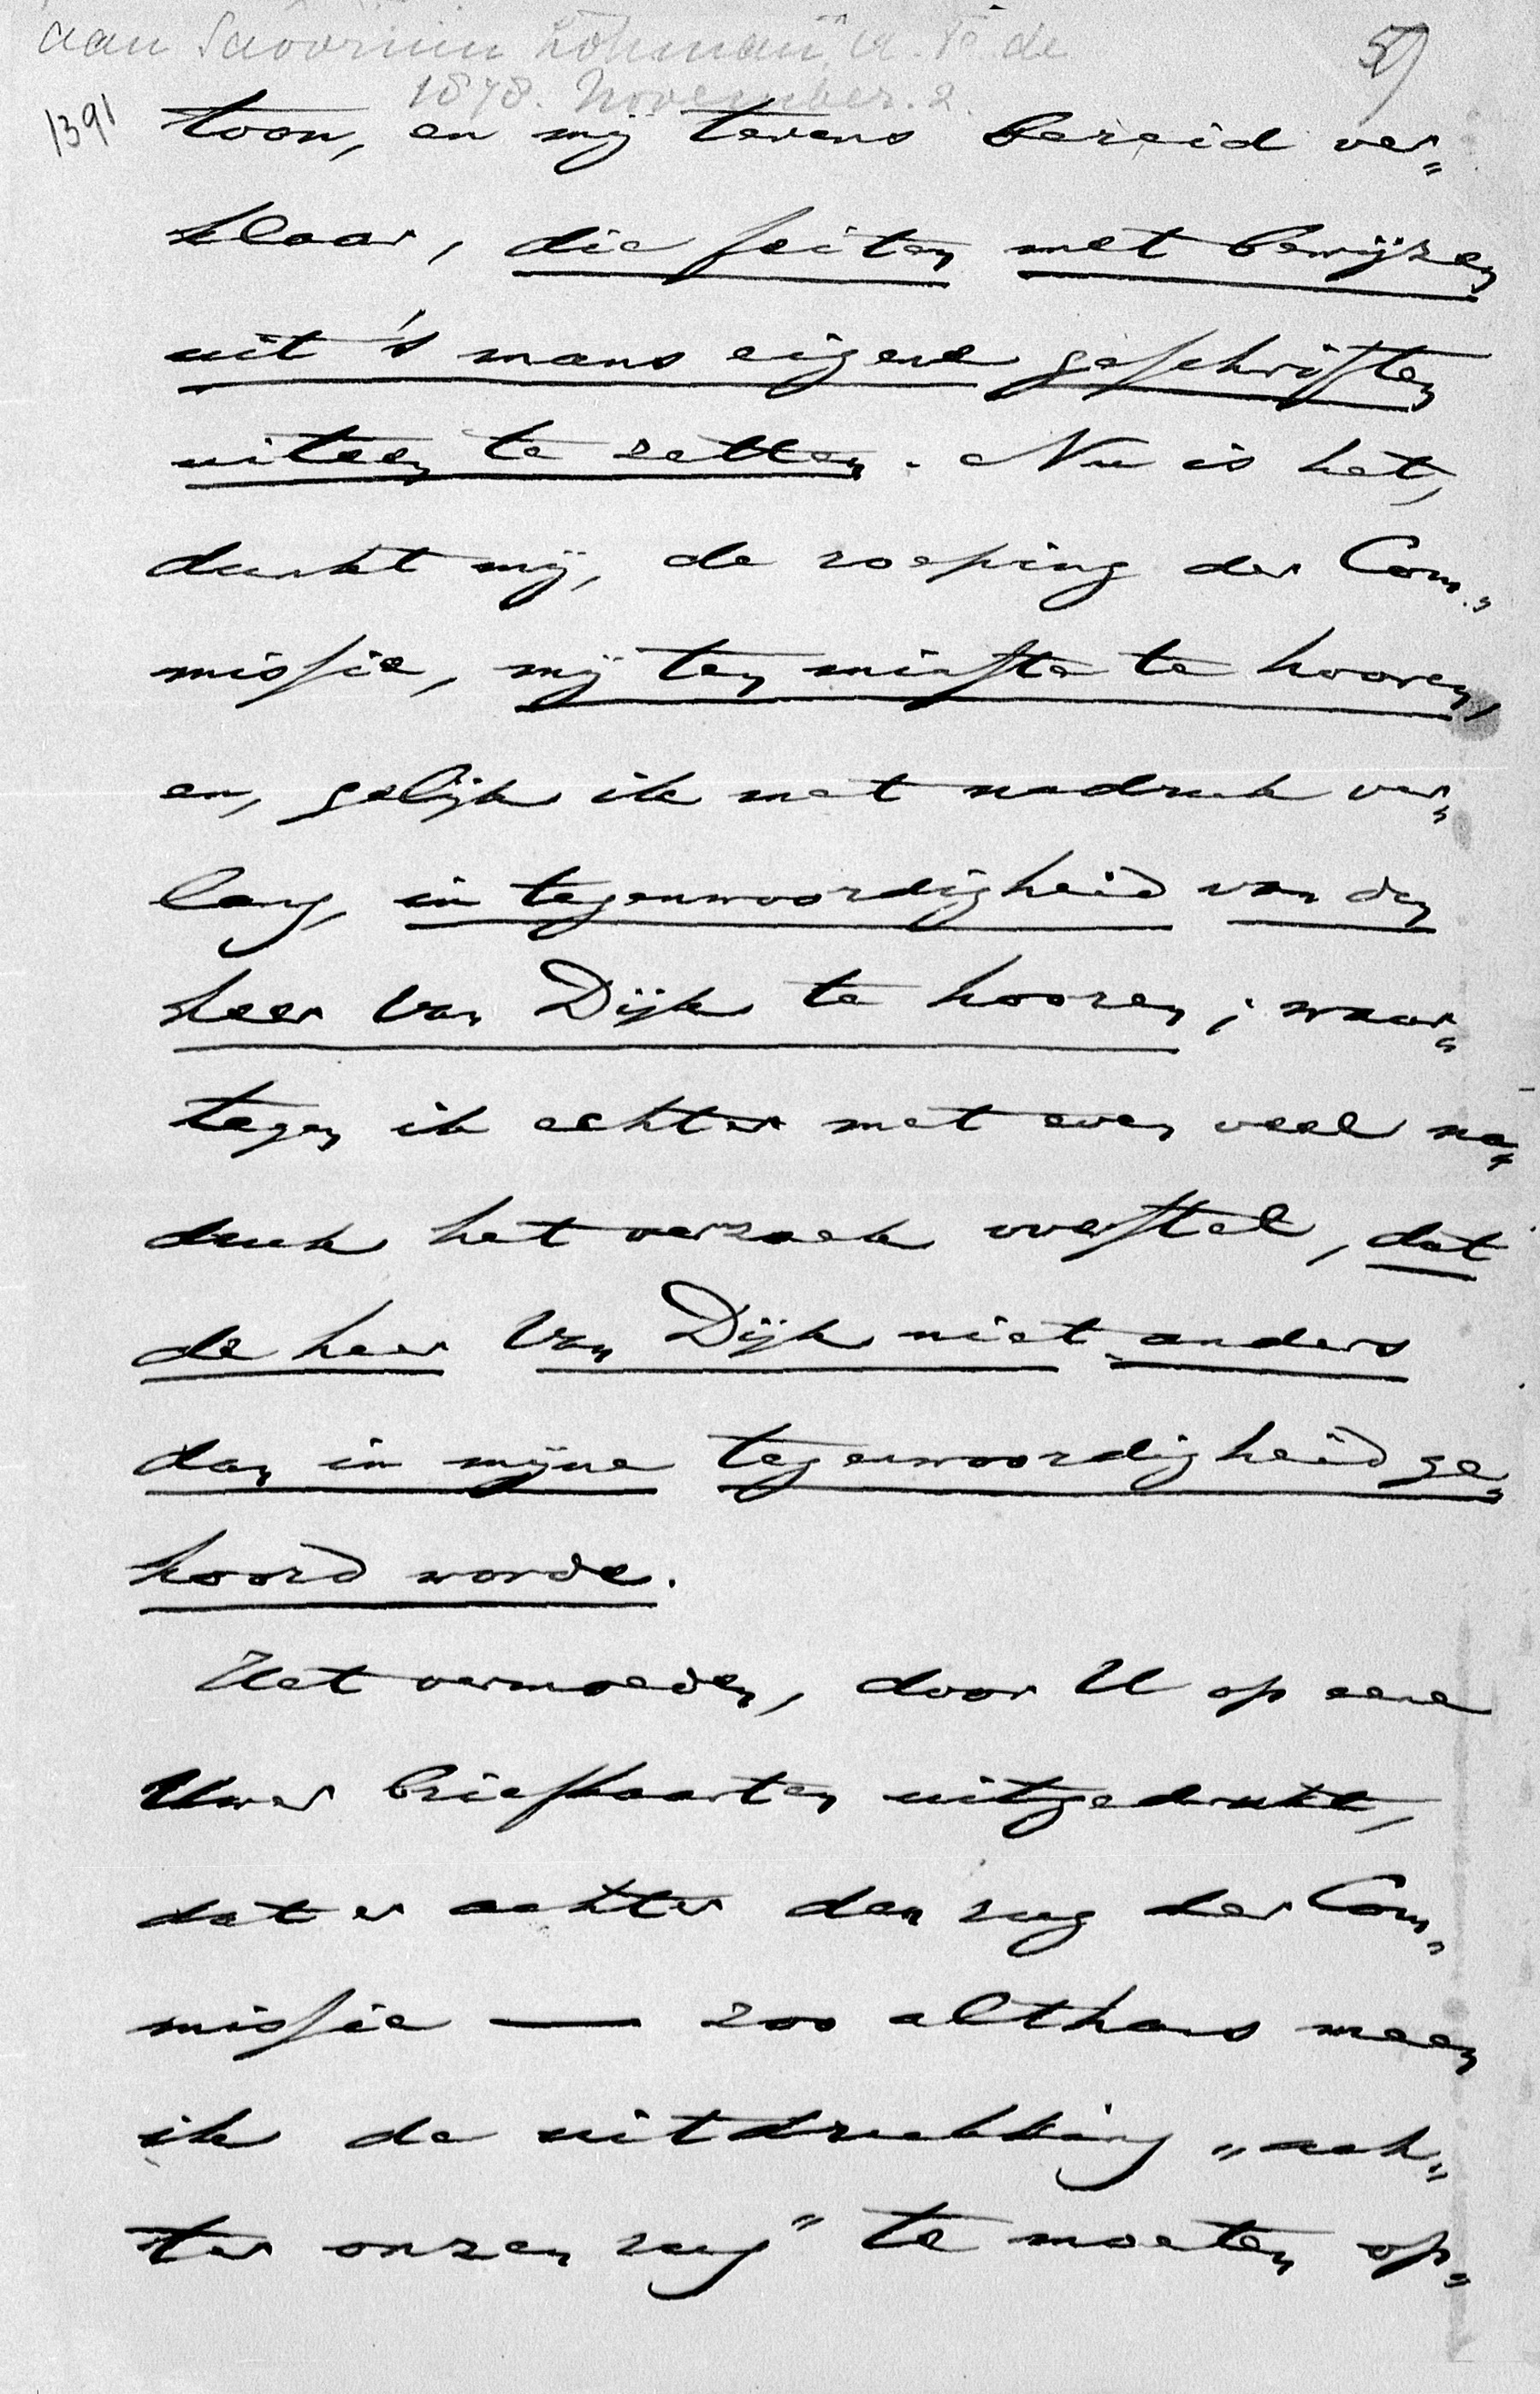 aan Savornin Lohman, A. F. de
59
1878. November. 2.
1391
toon, en mij tevens bereid ver„
klaar, die feiten met bewijzen
uit 's mans eigene geschriften
uiteen te zetten. Nu is het,
dunkt mij, de roeping der Com„
missie, mij ten minste te hooren,
en, gelijk ik met nadruk ver„
lang, in tegenwoordigheid van den
heer Van Dijk te hooren; waar„
tegen ik echter met even veel na„
druk het verzoek overstel, dat
de heer Van Dijk niet anders
dan in mijne tegenwoordigheid ge„
hoord worde.
Het vermoeden, door U op eene
Uwer briefkaarten uitgedrukt,
dat er achter den rug der Com„
missie — zoo althans meen
ik de uitdrukking „ach„
ter onzen rug” te moeten op„